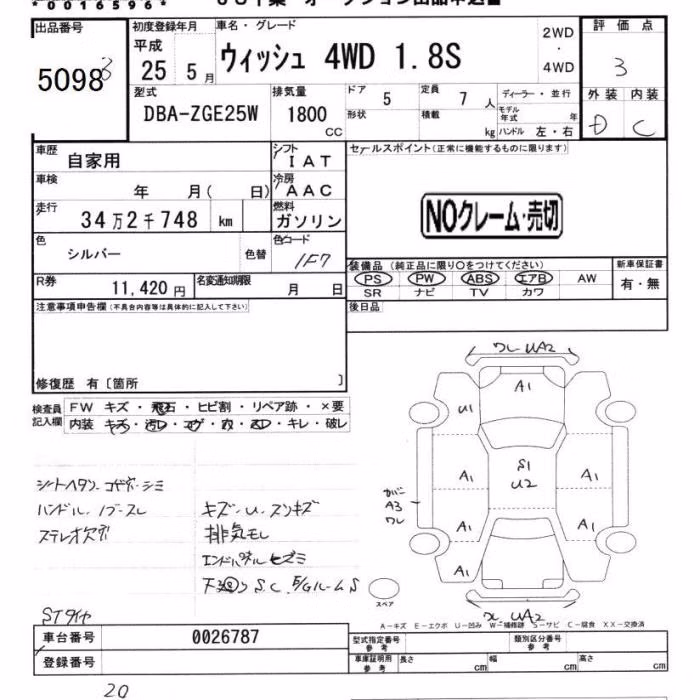 *0016596*
出品番号
50983
初度登録年月
平成
25 5 月
車名・グレード
ウィッシュ 4WD 1.8S
2WD
・
4WD
評価点
3
外装 内装
D C
型式
DBA-ZGE25W
排気量
1800
CC
ドア 5
形状
定員 7 人
積載 kg
ディーラー・並行
モデル年式 年
ハンドル 左・右
車歴 自家用
シフト IAT
セールスポイント(正常に機能するものに限ります)
車検 年 月( 日)
冷房 AAC
走行 34万2千748 km
燃料 ガソリン
NOクレーム・売切
色 シルバー 色替
色コード 1F7
装備品 (純正品に限り〇をつけてください)
PS PW ABS エアB AW
SR ナビ TV カワ
新車保証書
有・無
R券 11,420 円
名変通知期限 月 日
後日品
注意事項申告欄(不具合内容等は具体的に記入して下さい)
修復歴 有〔箇所 〕
検査員記入欄
FW キズ・飛石・ヒビ割・リペア跡・×要
内装 キズ・汚レ・コゲ・穴・スレ・キレ・破レ
シートヘタリ・コゲ・シミ
ハンドル・ノブ・スレ
ステレオ欠品
キズ・U・スリキズ
排気モレ
エンドパネルヒズミ
STタイヤ
ワレ UA2
A1
U1
A1
S1
U2
A1
カバー
A3
ワレ
A1
A1
A1
スペア
UA2
A-キズ E-エクボ U-凹み W-補修跡 S-サビ C-腐食 XX-交換済
車台番号 0026787
登録番号
型式指定番号 参考
類別区分番号 参考
車庫証明用 参考 長さ cm 幅 cm 高さ cm
20